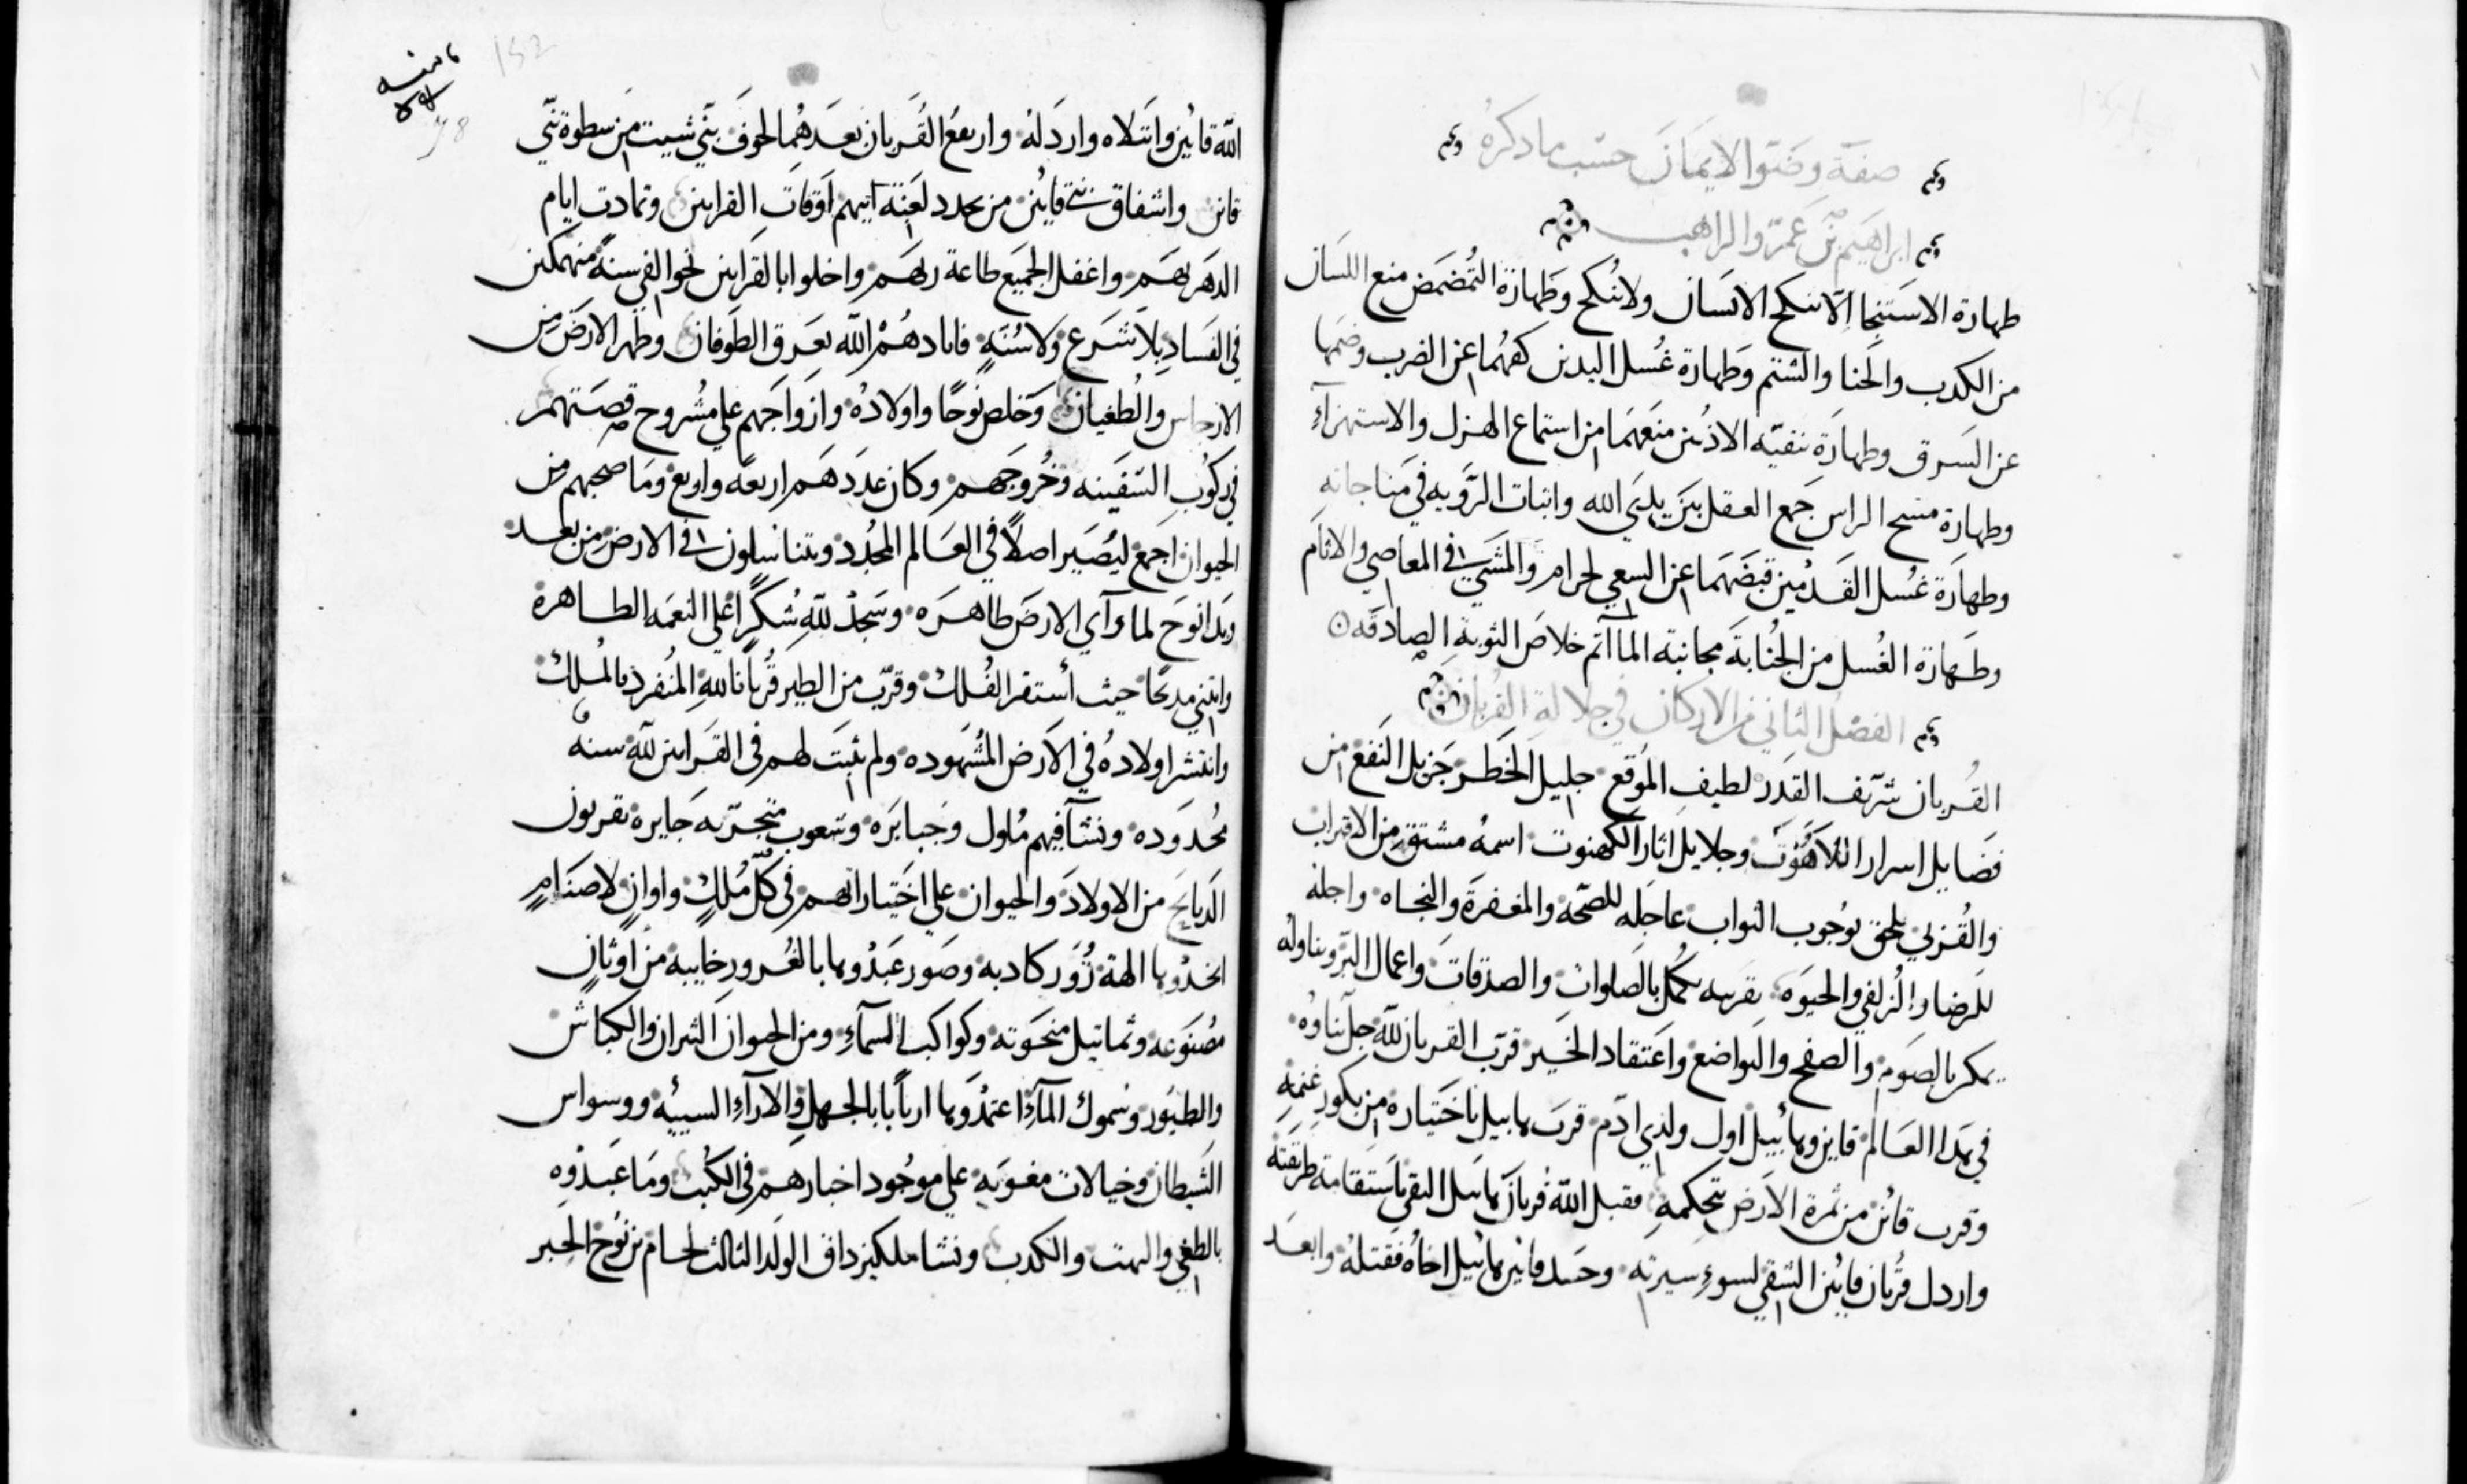 صفة وضوا الايمان حسب ما دكره
ابراهيم بن عمرو الراهب
طهارة الاستنجا الا تنكح الانسان ولا تُنكح وطهارة التُمضمَض منع اللسان
من الكدب والخنا والشتم وطهارة غُسل اليدين كفهُما عن الضرب وضمها
عن السَرق وطهارة تنقيّه الاذُنين منعَهمَا من استماع الهزل والاستهزآءِ
وطهارة مسح الراس جَمع العقل بَين يدَي الله واثبات الرَّويه في مَناجاته
وطهارَة غسُل القَدمُين قبضَهمَا عن السعي لحرام والمَشَي في المعاصي والاثام
وطَهارة الغُسل من الجُنابة مجانبة المآثم خلاصَ التوبةِ الصادقَه
الفصل الثاني من الاركان في جلالة القُربان
القُربان شرَيف القدَر لطيف المَوقع جليل الخَطر جَزيل النَفع من
فضَايل اسرار اللاَهُوت وجلايل اثار الكهنوت اسمهُ مشتق من الاقتراب
والقُربي يلحق بوُجوب الثواب عاجَله للصّحة والمغفرَة والنجاه واجله
للرضا والزلفي والحيوَه تقريبه يكمُل بالصَلوات والصدقات واعمال البّر ويناوله
بالصَوم والصفح والتواضع واعتقاد الخَير قرّب القربان للّه جل ثناوُه
في هدا العَالم قاين وهابيل اول ولدي ادَم قربَ هابيل باختياره من بكور غنمهِ
وقرب قائن من ثمرة الارَض بتحكمهِ فقبل اللّه قُربان هابيل التقي باستقامة طريقته
واردل قُربان قايُن الشقي لسوءِ سيرته وحَسد قايُن هابيل اخاهُ فقتلهُ وابعَد
اللّه قايُن وابتلاه واردَلهُ وارتفعُ القُربان بعدَهُما لخوف بنّي شيت من سطوة بنّي
قائن واشفاق بني قايُن من تجدد لعَنة ابيهم اوَقات القرابين وتمادت ايام
الدهَر بهَم واغفل الجميَع طاعة ربهَم واخلوا بالقرَابين نحو الفي سنةً منهمكين
في الفسَاد بلا شرَع ولا سُنّهٍ فابادهُمْ اللّه بغَرق الطَوفان وطهر الارَض من
الارجاس والطغيان وَخلص نوُحًا واولادُه وازواجَهم علي مشُروح قصَتهم
في ركوُب السَفينه وخُروجَهم وكان عدَدهَم اربعَه واربع ومَا صحبهم من
الحيوان اجمعَ ليُصَير اصلاً في العَالم المجُدد ويتناسلون في الارض من بعد
وبدَا نوَح لما رآي الارضَ طاهرَه وسَجدْ للّهِ شُكرًا علي النعمَه الطاهرة
وابتني مدبَحًا حيث أستقر الفُلك وقرّب من الطير قُربانا للّهِ المُنفرد بالمُلك
وانتشر اولادهُ في الارَض المشُهوده ولم يثبَت لهم في القرَابين للّهِ سنهٌ
محُدوَده ونشآ فيهم مُلوك وجبابرَه وشعوب متجبّره جَايره يقربون
الدبايح من الاولادَ والحيوان علي اختياراتهم في كلّ مُلكٍ واوانٍ لاصنَامٍ
اتخدوُها الهة زُوَر كادبه وصَور عَبدُوها بالغُرور خايبه من اوثانٍ
مصَنوَعه وثماتيل منحَوته وكواكب السمآءِ ومن الحيوان الثيران والكباش
والطيور وسُموك المآءِ اعتمدُوَها ارباًبا بالجهلِ والارآءِ السييُه ووسواس
الشَيطان وخيالات مغوَيهِ علي موجُود اخبارهم في الكُتب ومَا عبدوُه
بالطغي والبهت والكدب ونشا ملكيزداق الولَد الثالث لحام بن نوُح الحبر
152